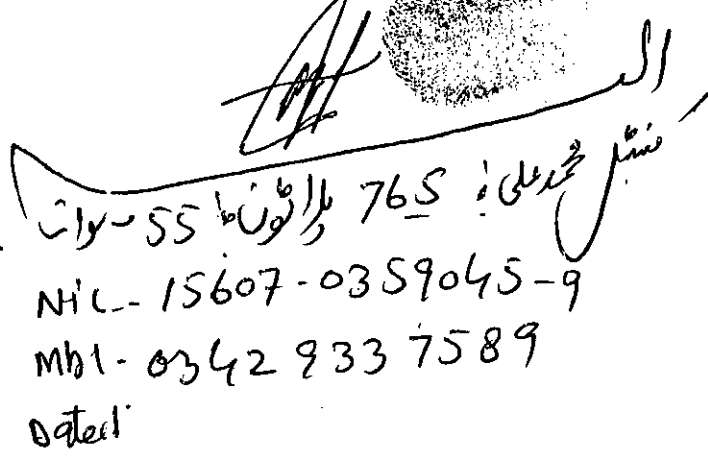 الـ
کنسٹبل محمد علی 765 پلاٹون 55 سوات
NiC-- 15607-0359045-9
Mbl- 0342 933 7589
Dated